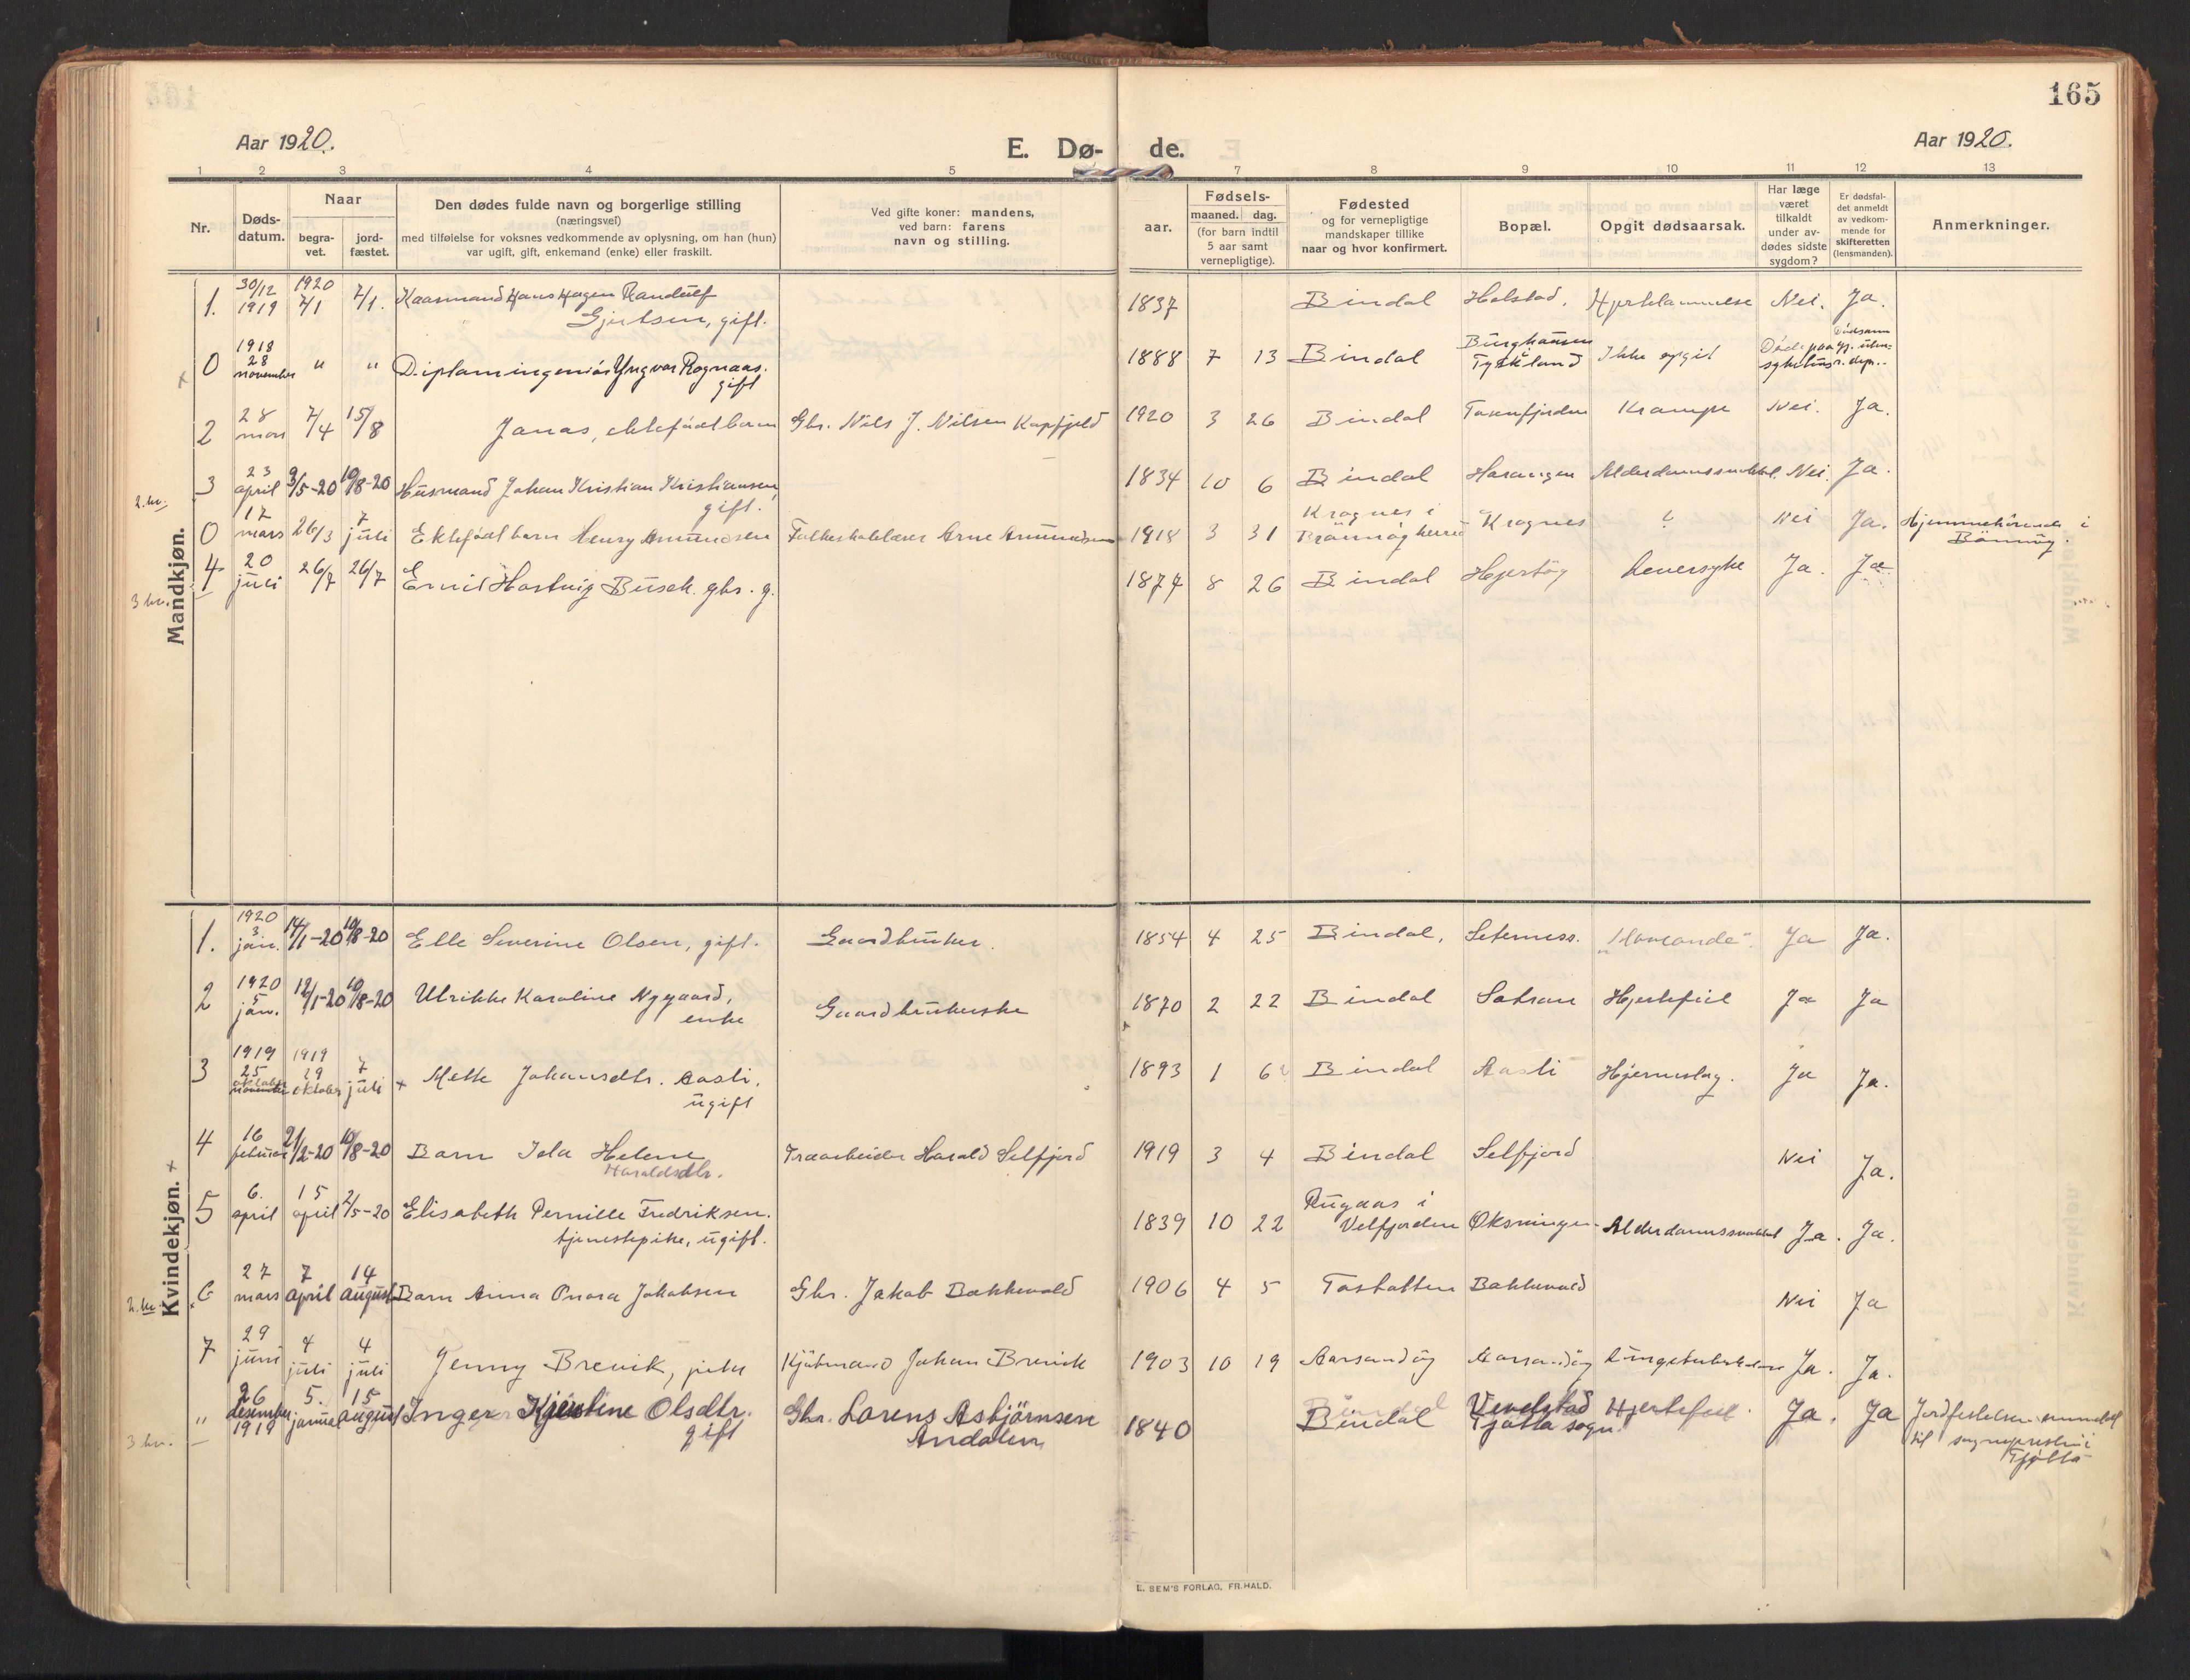 165
Aar 1920.
E. Dø- de.
Aar 1920.
1 2 3 4 5 7 8 9 10 11 12 13
Nr.
Døds-
datum.
Naar
begra-
vet.
jord-
fæstet.
Den dødes fulde navn og borgerlige stilling
(næringsvei)
med tilføielse for voksnes vedkommende av oplysning, om han (hun)
var ugift, gift, enkemand (enke) eller fraskilt.
Ved gifte koner: mandens,
ved barn: farens
navn og stilling.
Fødsels-
aar.
maaned. dag.
(for barn indtil
5 aar samt
vernepligtige).
Fødested
og for vernepligtige
mandskaper tillike
naar og hvor konfirmert.
Bopæl.
Opgit dødsaarsak.
Har læge
været
tilkaldt
under av-
dødes sidste
sygdom?
Er dødsfal-
det anmeldt
av vedkom-
mende for
skifteretten
(lensmanden).
Anmerkninger.
Mandkjøn.
1. 30/12 1919 1920 7/1 7/1. Kaarmand Hans Hagen Randulf
Gjertsen, gift. 1837 Bindal Holstad. Hjertelammelse Nei. Ja.
0 1918 28 november " " Diplomingeniør Yngvar Rognaas.
gift 1888 7 13 Bindal Burghausen
Tyskland Ikke opgit
2 28 mars 7/4 15/8 Jonas, ektefødt barn Gbr. Nils J. Nilsen Kapfjeld 1920 3 26 Bindal Tosenfjorden Krampe Nei. Ja.
2 kr.
3 23 april 3/5-20 10/8-20 Husmand Johan Kristian Kristiansen,
gift. 1834 10 6 Bindal Horangen Alderdomssvakhet. Nei. Ja.
0 17 mars 26/3 7 juli Ektefødt barn Henry Amundsen Folkeskolelærer Arne Amundsen 1918 3 31 Krognes i
Brønnøy herred Krognes ? Nei Ja. Hjemmehørende i
Brønnøy.
3 kr.
4 20 juli 26/7 26/7 Emil Hartvig Busch. gbr. g. 1874 8 26 Bindal Hjertøy Leversyke Ja. Ja
Kvindekjøn.
1. 1920 3. jan. 14/1-20 10/8-20 Elle Severine Olsen, gift. Gaardbruker. 1854 4 25 Bindal, Seterness. Ja Ja.
2 1920 5 jan. 12/1-20 10/8-20 Ulrikke Karoline Nygaard,
enke Gaardbrukerske 1870 2 22 Bindal Hjertefeil Ja Ja
3 1919 25 oktober november 1919 29 oktober 7 juli Mette Johansdtr. Aasli.
ugift 1893 1 6 Bindal Aasli Hjerneslag. Ja Ja.
4 16 februar 21/2-20 10/8-20 Barn Ida Helene
Haraldsdtr. Træarbeider Harald Selfjord 1919 3 4 Bindal Selfjord Nei Ja.
5 6. april 15 april 2/5-20 Elisabeth Pernille Fredriksen.
tjenestepike, ugift. 1839 10 22 Rugaas i
Velfjorden Øksningen Alderdomssvakhet Ja. Ja.
2 kr.
6 27 mars 7 april 14 august Barn Anna Onora Jakobsen Gbr. Jakob Bakkevold 1906 4 5 Tosbotten Bakkevold Nei Ja
7 29 juni 4 juli 4 juli Jenny Brevik, pike Kjøbmand Johan Brevik 1903 10 19 Aarsandøy Aarsandøy Lungetuberkulose Ja. Ja.
3 kr.
" 26 desember 1919 5. januar 15 august Inger Kjerstine Olsdtr.
gift Gbr. Lorens Asbjørnsen
Andalen 1840 Bindal Vevelstad
Tjøtta sogn. Hjertefeil. Ja. Ja Jordfestelsen anmeldt
til sogneprest i
Tjøtta
E. SEM'S FORLAG, FR.HALD.